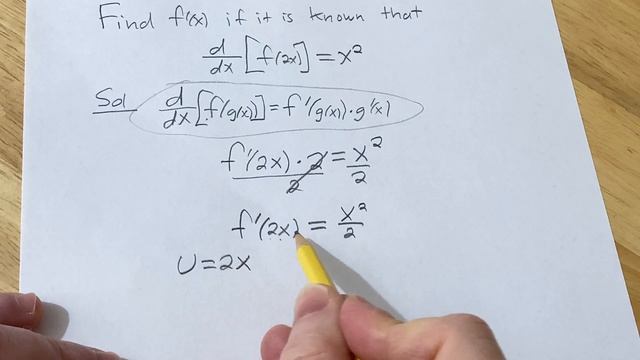 Find f'(x) if it is known that
d/dx [f(2x)] = x²
Sol d/dx [f(g(x))] = f'(g(x)) · g'(x)
f'(2x) · 2 / 2 = x² / 2
f'(2x) = x² / 2
U = 2x